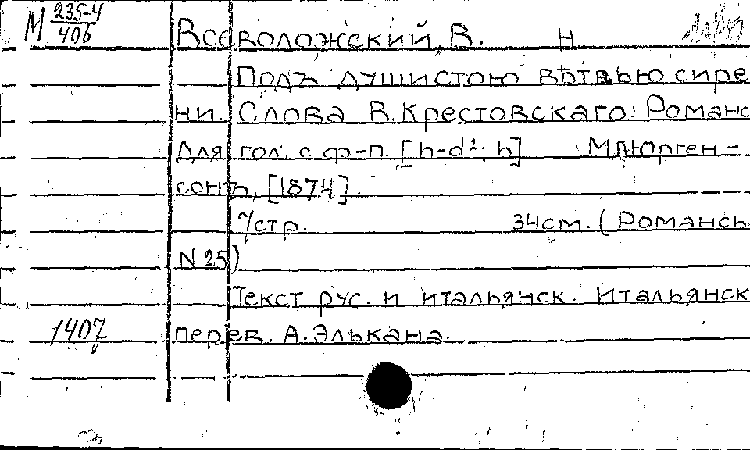 М 235-4
406
Всеволожский, В. Н
Подъ душистою вѣтвью сире
ни. Слова В. Крестовскаго. Романс
для гол. с ф-п. [h-d²; h] М., Юрген-
сонъ, [1874].
7 стр. 34см. (Романсы
N 25)
Текст рус. и итальянск. Итальянск
1407 перев. А. Элькана.